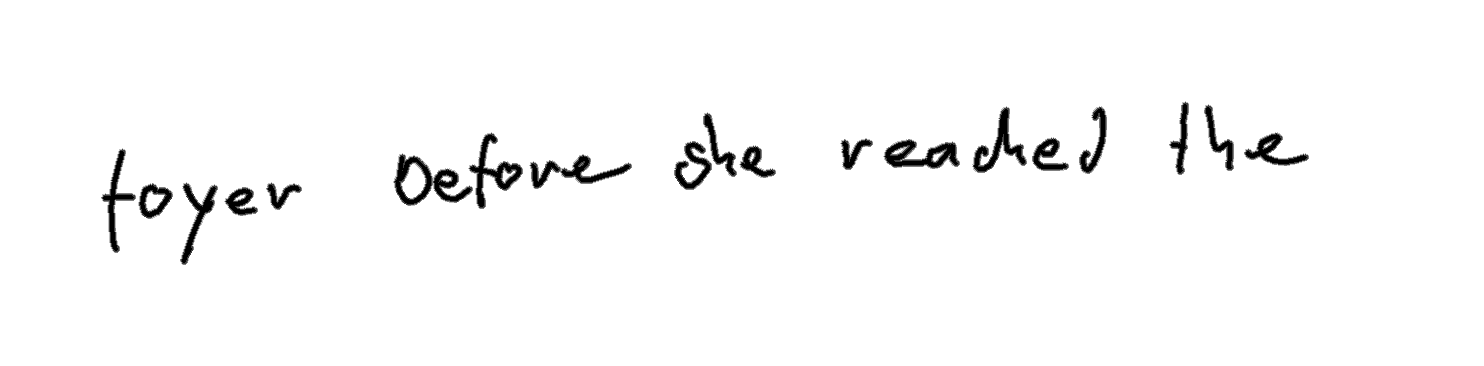 foyer before she reached the